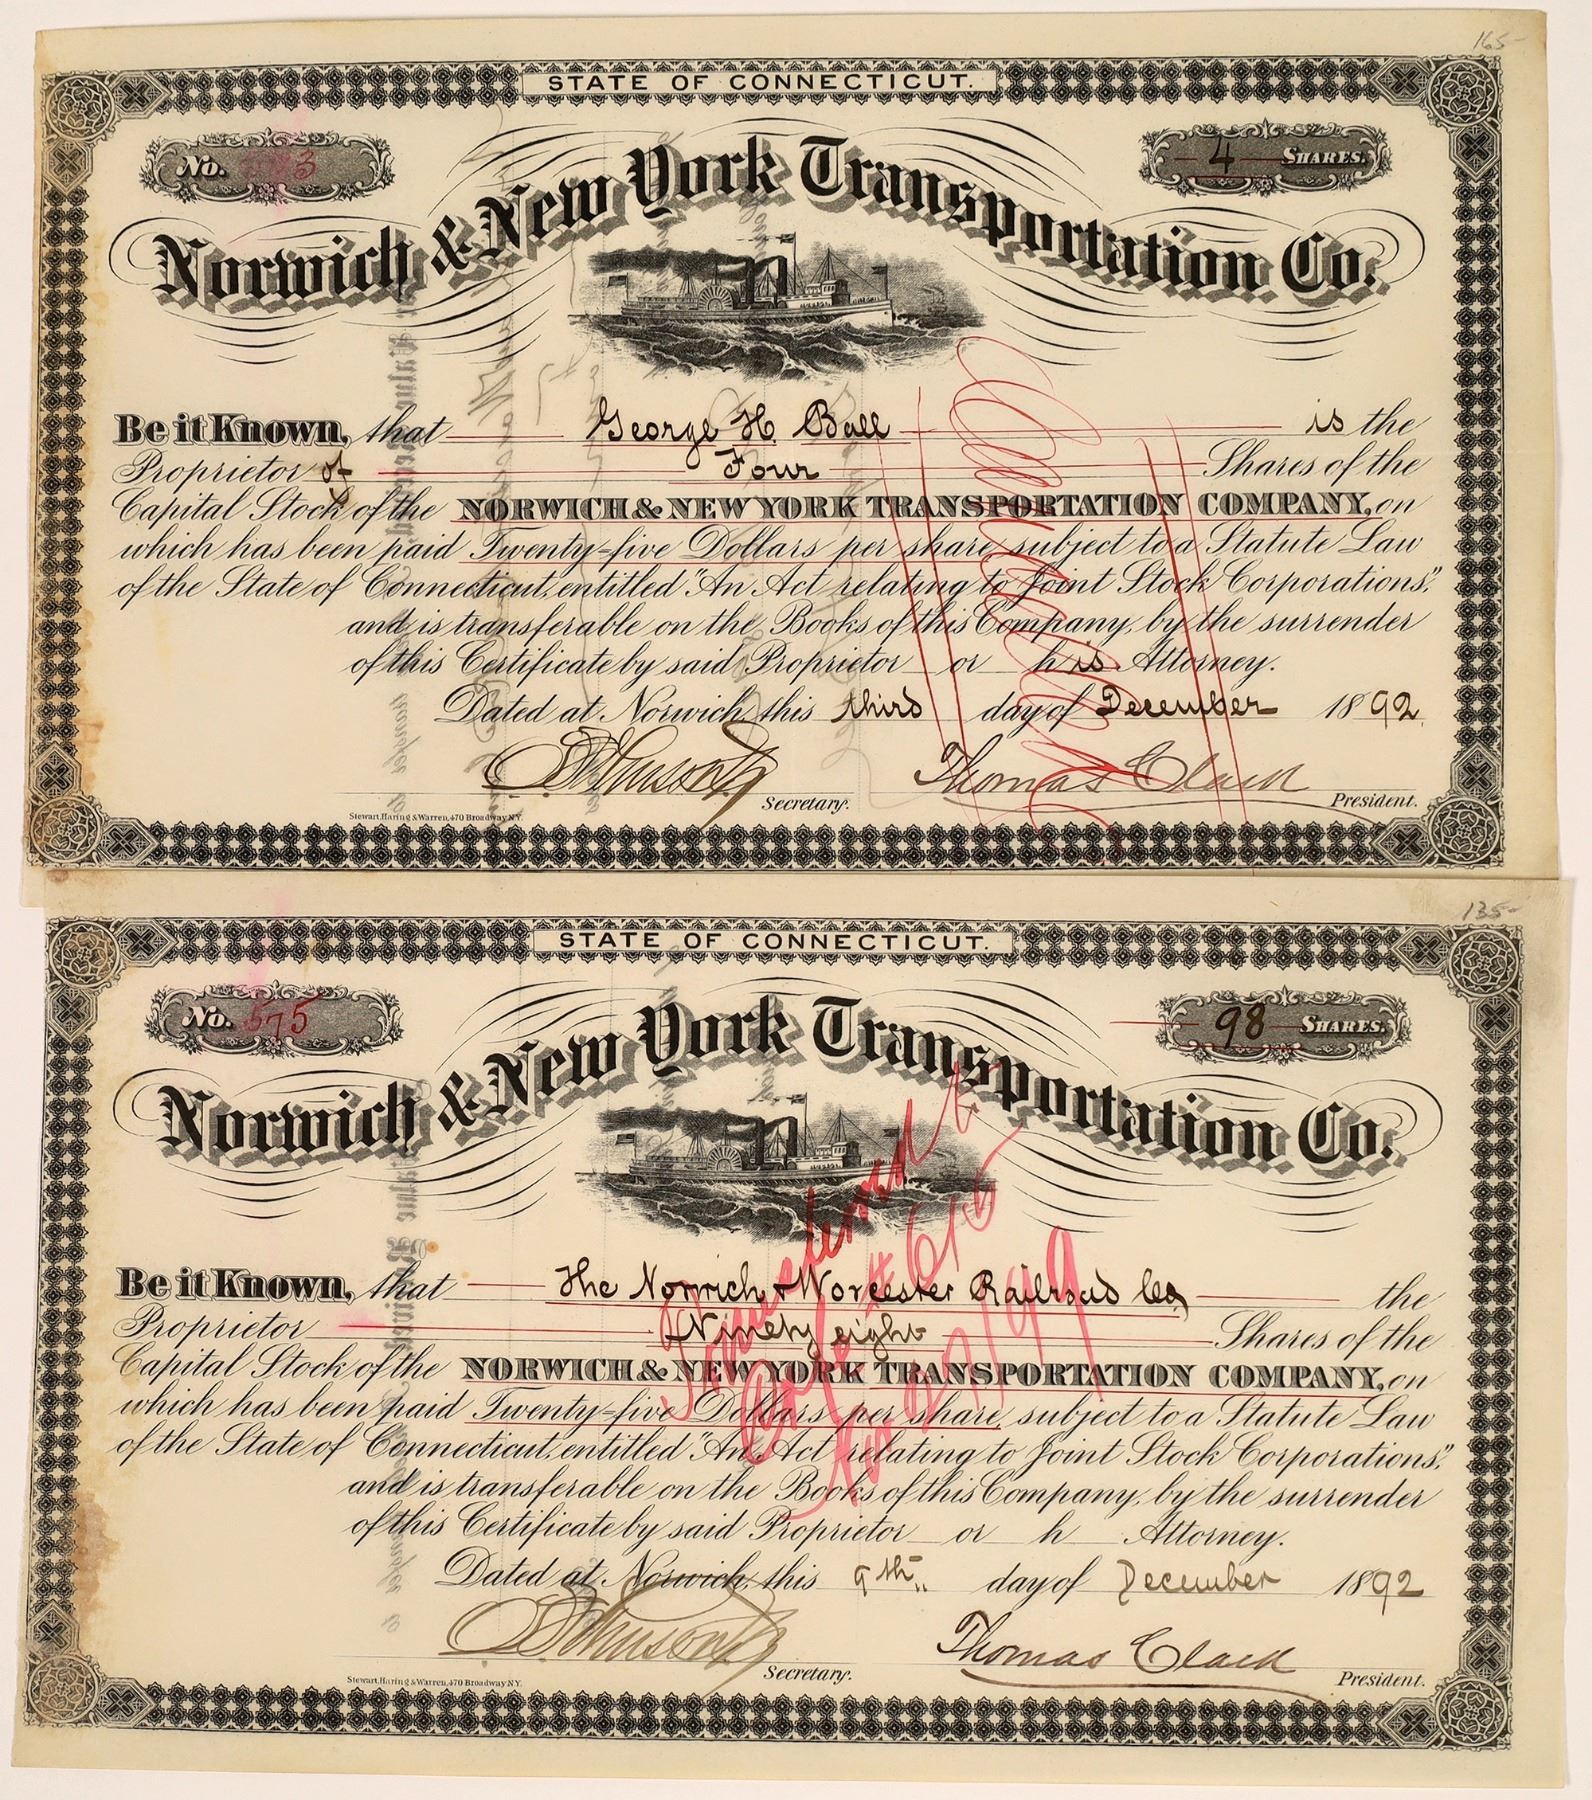 165-
STATE OF CONNECTICUT.
No. 3
4 SHARES.
Norwich & New York Transportation Co.
Be it Known, that George H. Ball is the
Proprietor of Four Shares of the
Capital Stock of the NORWICH & NEW YORK TRANSPORTATION COMPANY, on
which has been paid Twenty-five Dollars per share, subject to a Statute Law
of the State of Connecticut, entitled "An Act relating to Joint Stock Corporations",
and is transferable on the Books of this Company, by the surrender
of this Certificate by said Proprietor or his Attorney.
Dated at Norwich, this third day of December 1892
Thomas Clark
Secretary. President.
Stewart, Haring & Warren, 470 Broadway N.Y.
135-
STATE OF CONNECTICUT.
No. 575
98 SHARES.
Norwich & New York Transportation Co.
Be it Known, that The Norwich & Worcester Railroad Co. the
Proprietor Ninety eight Shares of the
Capital Stock of the NORWICH & NEW YORK TRANSPORTATION COMPANY, on
which has been paid Twenty-five Dollars per share, subject to a Statute Law
of the State of Connecticut, entitled "An Act relating to Joint Stock Corporations",
and is transferable on the Books of this Company, by the surrender
of this Certificate by said Proprietor or h Attorney.
Dated at Norwich, this 9th day of December 1892
Thomas Clark
Secretary. President.
Stewart, Haring & Warren, 470 Broadway N.Y.